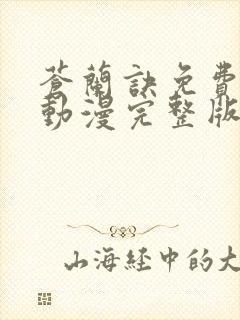 蒼蘭訣免費
動漫完整版
山海經中的大